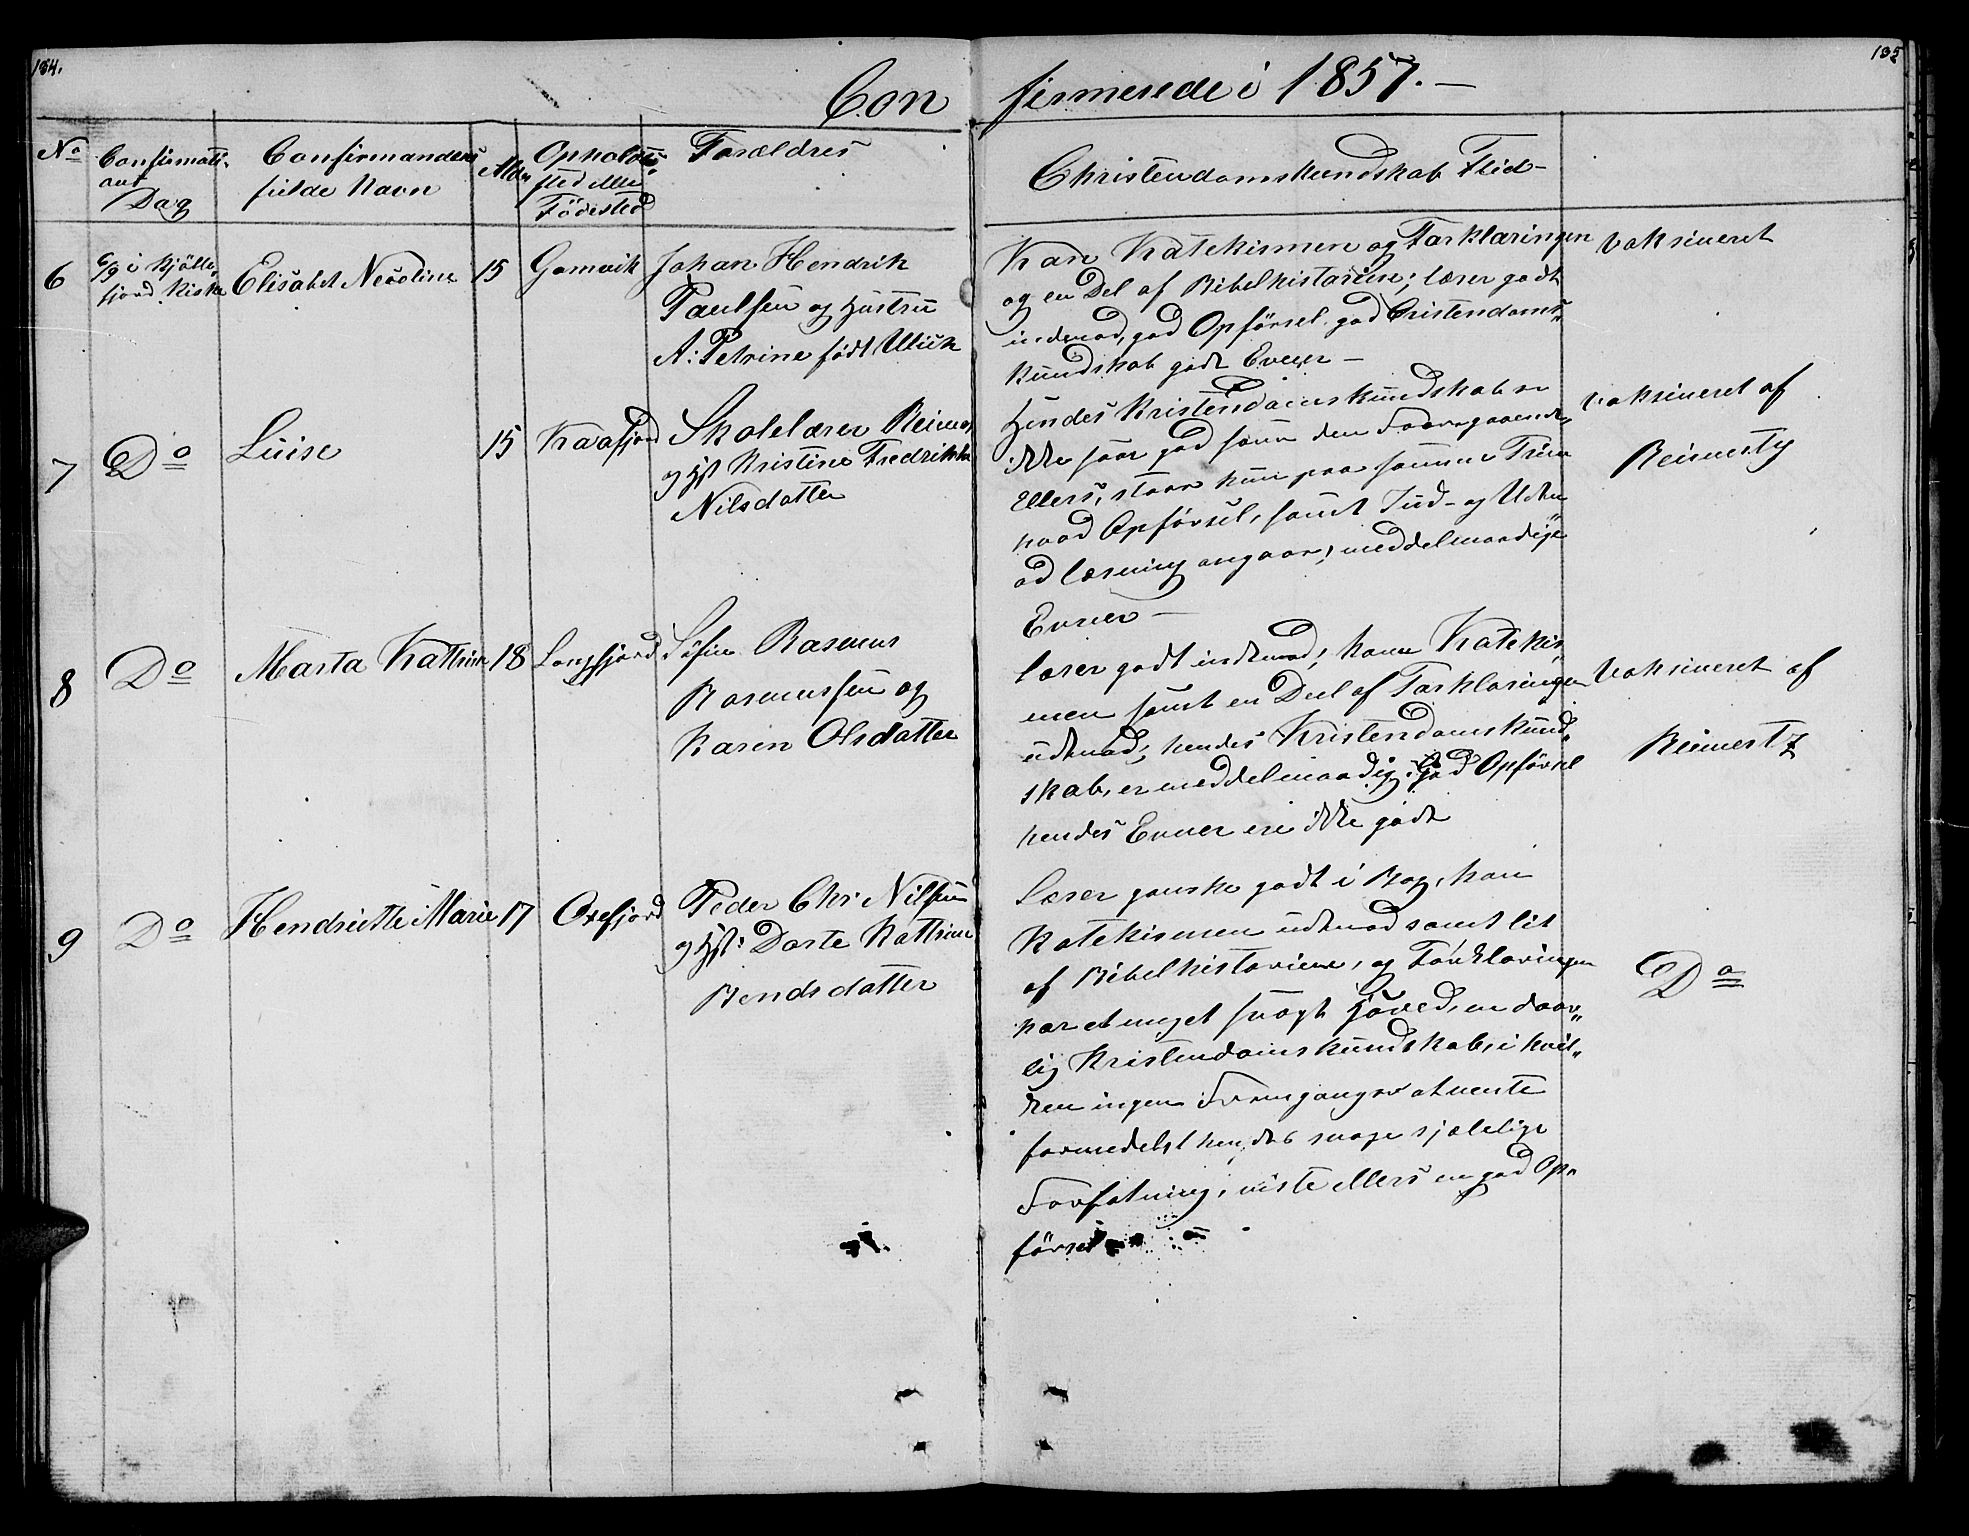 134.
135
Confirmerede i 1857. —
No
Confirmati-
ons
Dag
Confirmandens
fulde Navn
Alder
Opholds-
sted eller
Fødested
Forældres
Christendomskundskab Flid
6
6/9 i Kjølle-
fjord Kirke
Elisabet Nicoline
15
Gamvik
Johan Hendrik
Paulsen og Hustru
A: Petrine født Ulich
Kan Katekismen og Forklaringen
og en Del af Bibelhistorien; læser godt
indenad, god Opførsel, god Cristendoms-
kundskab godt Evner —
Vaksineret
7
Do
Luise
15
Kaafjord
Skolelærer Reimer
og Hst Kristine Fredrikke
Nilsdatter
Hendes Kristendomskundskab er
ikke saa god som den Foregaaende,
Ellers staar hun paa samme Trin
hvad Opførsel, samt Ind- og Uden-
ad læsning angaar, meddelmaadige
Evner —
Vaksineret af
Reimerts
8
Do
Marta Katrine
18
Langfjord
Søfin Rasmus
Rasmussen og
Karen Olsdatter
læser godt indenad; kan Katekis-
men samt en Deel af Forklaringen
udenad; hendes Kristendomskund-
skab er meddelmaadig, god Opførsel
hendes Evner ere ikke godt
Vaksineret af
Reimertz
9
Do
Hendriette Marie
17
Oxefjord
Peder Chr Nilsen
og Hst: Dorte Kattrine
Bendsdatter
Læser ganske godt i Bog, kan
Katekismen udenad samt lit
af Bibelhistorien, og Forklaringen
har et meget svagt Hoved, en daar-
lig Kristendomskundskab, i hvil-
ken ingen Fremgang er at vente
formedelst hendes svage sjælelige
Forfatning, viste ellers en god Op-
førsel
Do